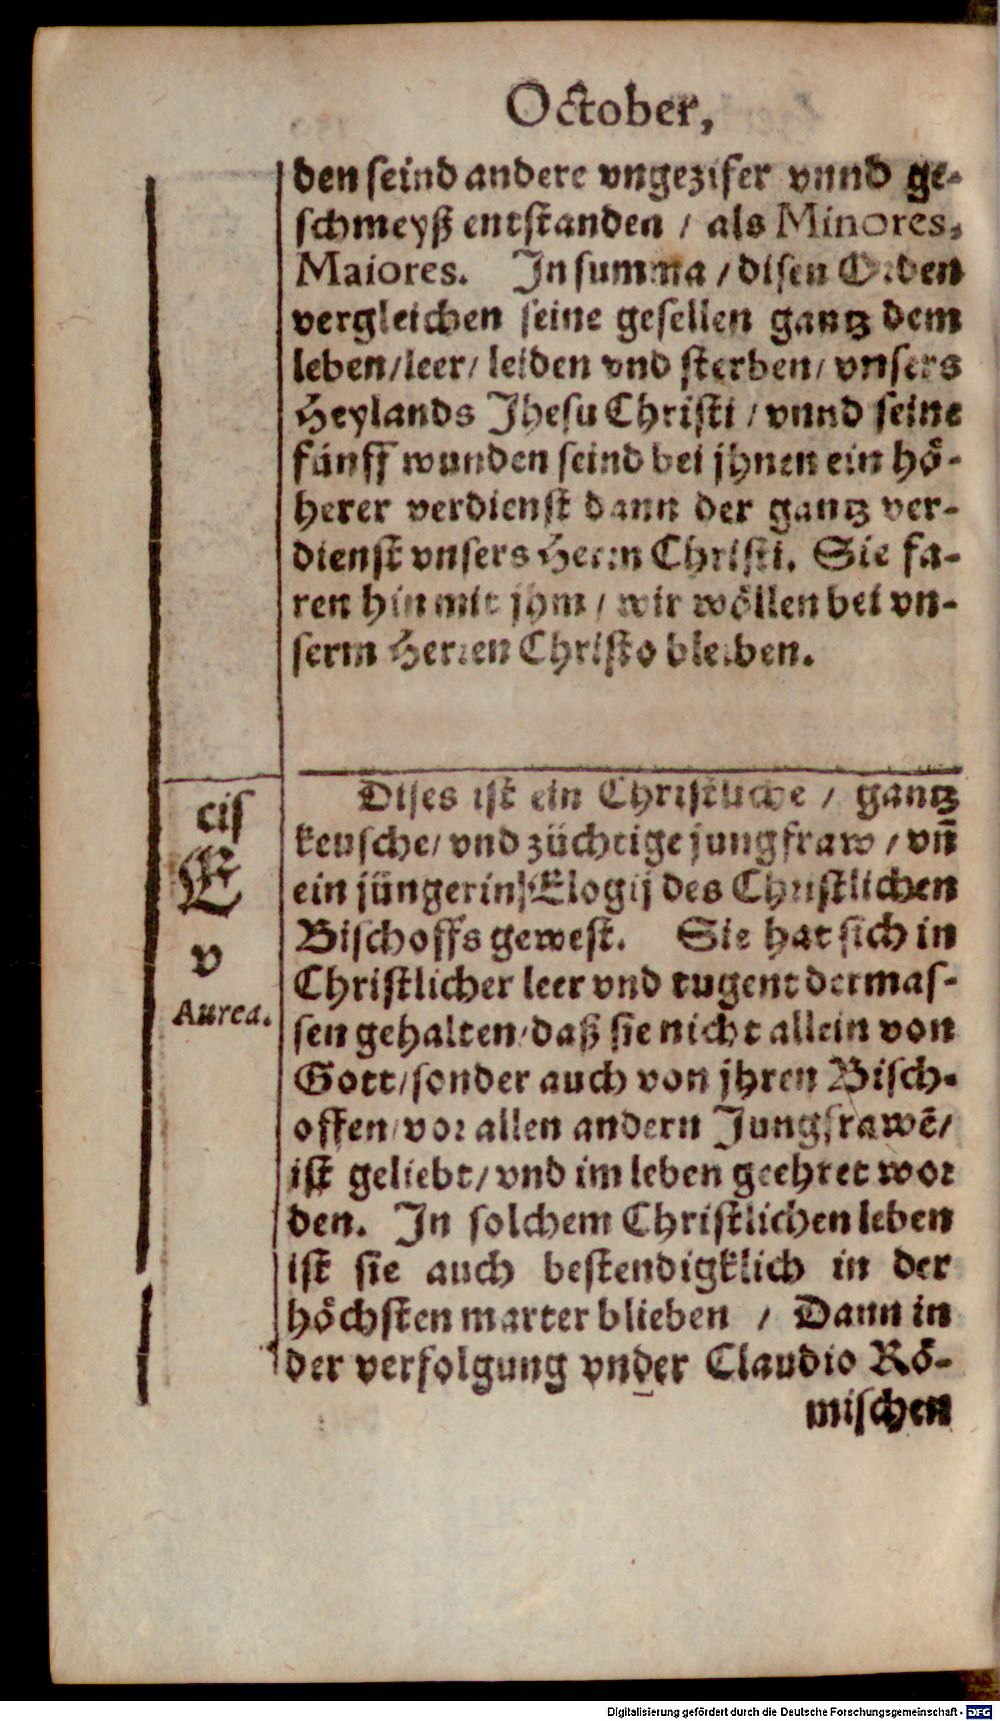 October,
den seind andere vngezifer vnnd ge-
schmeyß entstanden / als Minores,
Maiores. In summa / disen Orden
vergleichen seine gesellen gantz dem
leben / leer / leiden vnd sterben / vnsers
Heylands Jhesu Christi / vnnd seine
fünff wunden seind bei jhnen ein hö-
herer verdienst dann der gantz ver-
dienst vnsers Herrn Christi. Sie fa-
ren hin mit jhm / wir wöllen bei vn-
serm Herren Christo bleiben.
cis
E
v
Aurea.
Dises ist ein Christliche / gantz
keusche / vnd züchtige jungfraw / vn̄
ein jüngerin Elogij des Christlichen
Bischoffs gewest. Sie hat sich in
Christlicher leer vnd tugent dermas-
sen gehalten / daß sie nicht allein von
Gott / sonder auch von jhren Bisch-
offen / vor allen andern Jungfrawē /
ist geliebt / vnd im leben geehret wor
den. In solchem Christlichen leben
ist sie auch bestendigklich in der
höchsten marter blieben / Dann in
der verfolgung vnder Claudio Rö-
mischen
Digitalisierung gefördert durch die Deutsche Forschungsgemeinschaft - DFG